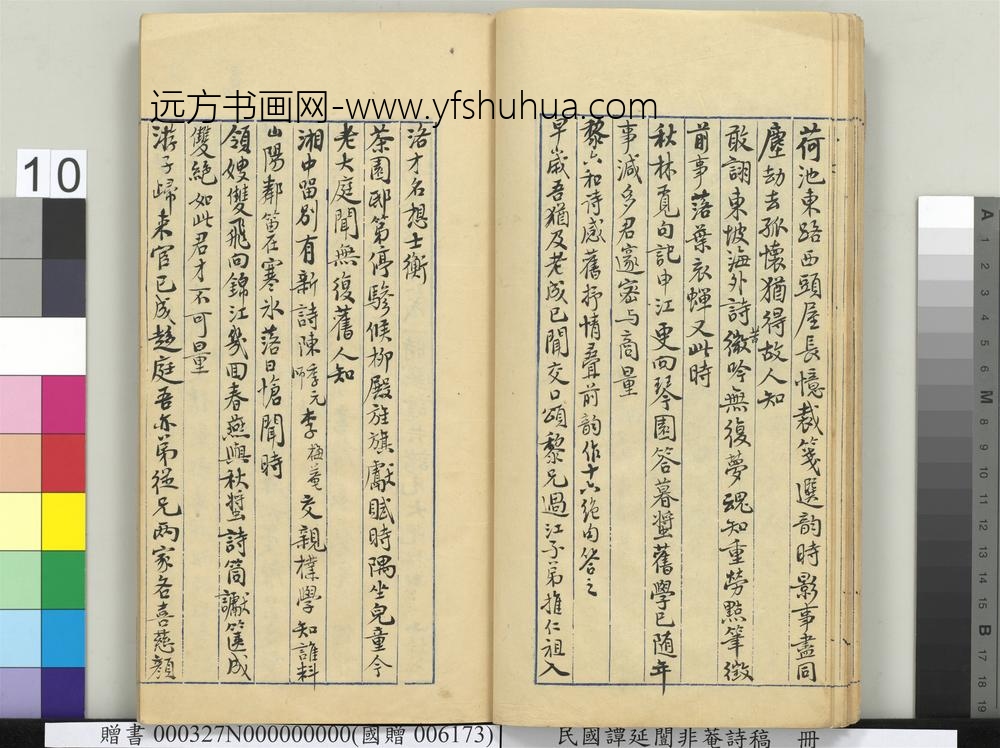 荷池東路西頭屋長憶裁箋選韵時影事盡同
塵劫去孤懷猶得故人知
敢詡東坡海外詩微吟無復夢魂知重勞點筆徵
前事落葉衣蟬又此時
秋林覓句記申江更向琴園答暮蛩舊學已随年
事減多君邃密与商量
黎六和诗感舊抒情疊前韵作十六絕句答之
早歲吾猶及老成已聞交口頌黎兄過江子弟推仁祖入
洛才名想士衡
茶園邸第停驂候柳殿旌旗獻賦時隅坐兒童今
老大庭聞無復舊人知
湘中留别有新詩陳季元師李梅菴交親樸學知誰料
山陽鄰笛在寒氷落日愴聞時
領嫂雙飛向錦江幾回春燕與秋蛩詩筒讞篋成
雙絕如此君才不可量
游子歸来官已成趍庭吾亦弟從兄兩家各喜慈顏
远方书画网-www.yfshuhua.com
10
A
1
2
3
4
5
6
M
8
9
10
11
12
13
14
15
B
17
18
19
贈書 000327N000000000(國贈 006173)
民國譚延闓非菴詩稿 冊